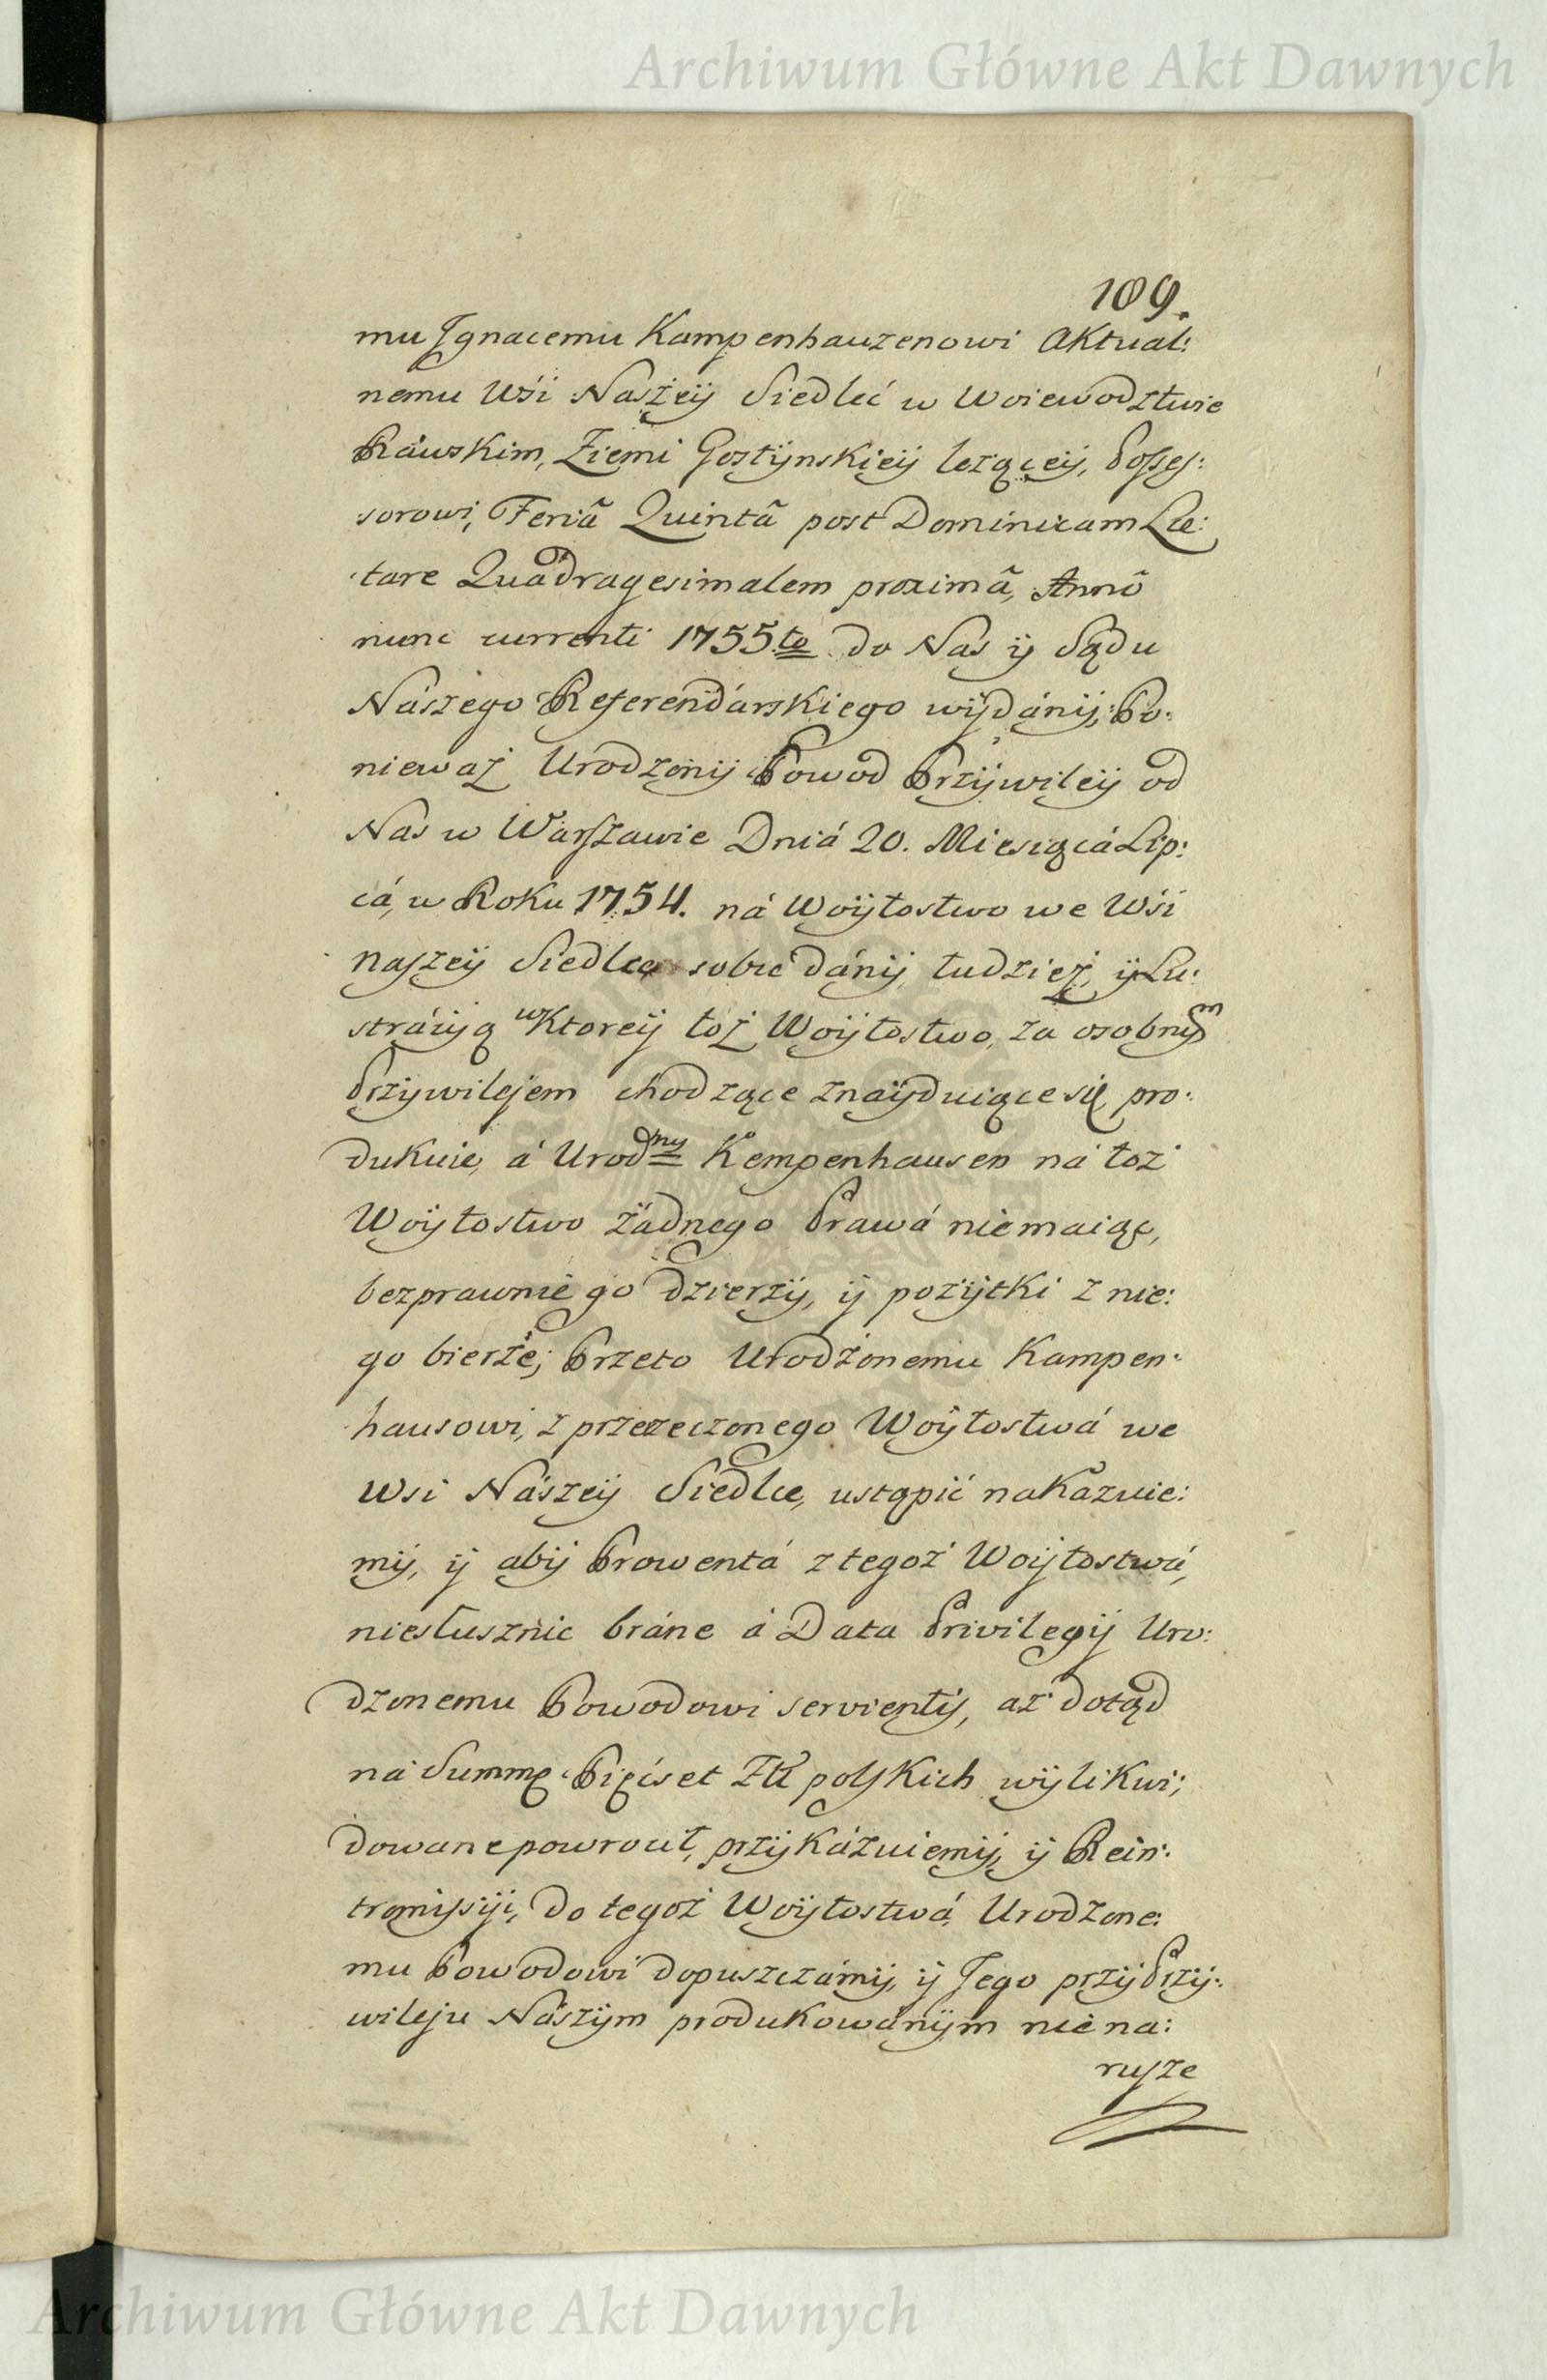 Archiwum Główne Akt Dawnych
109.
mu Jgnacemu Kampenhauzenowi Aktual:
nemu Wśi Naszeÿ Siedlć w Woiewodztwie
Ráwskim, Ziemi Gostÿnskieÿ leząceÿ, Posses:
sorowi, Feriâ Quintâ post Dominicam Læ:
tare Quadragesimalem proximâ, Annô
nunc currenti 1755.to do Nas ÿ Sądu
Nászego Referendárskiego wÿdánÿ; Po:
niewaz Urodzonÿ Powod Przÿwileÿ od
Nas w Warszawie Dniá 20. Miesiącá Lip:
cá, w Roku 1754. ná Woÿtostwo we Wśi
naszeÿ Siedlcą sobie dánÿ, tudziez, ÿ Lu:
stráiÿą w Ktoreÿ toz Woÿtostwo, za osobnÿm
Przÿwilejem chodzące znaÿduiące się pro:
dukuie, á Urodny Kempenhausen ná toz
Woÿtostwo żadnego Prawá niemaiąc,
bezprawnie go dzierzÿ, ÿ pozÿtki z nie:
go bierze; Przeto Urodzonemu Kampen:
hausowi, z przerzeczonego Woÿtostwá we
Wsi Nászeÿ Siedlce, ustąpić nakazuie:
mÿ, ÿ abÿ Prowentá z tegoz Woÿtostwá,
niesłusznie bráne á Data Privilegÿ Uro:
dzonemu Powodowi servientÿ, az dotąd
ná Summę Pięćset Zł polskich wÿlikwi;
dowane powrocił, przÿkázuiemÿ, ÿ Rein:
tromissÿi, do tegoz Woÿtostwá, Urodzone:
mu Powodowi dopuszczámÿ, ÿ Jego przÿ Przÿ:
wileju Nászÿm produkowánÿm nie na:
rusze
Archiwum Główne Akt Dawnych